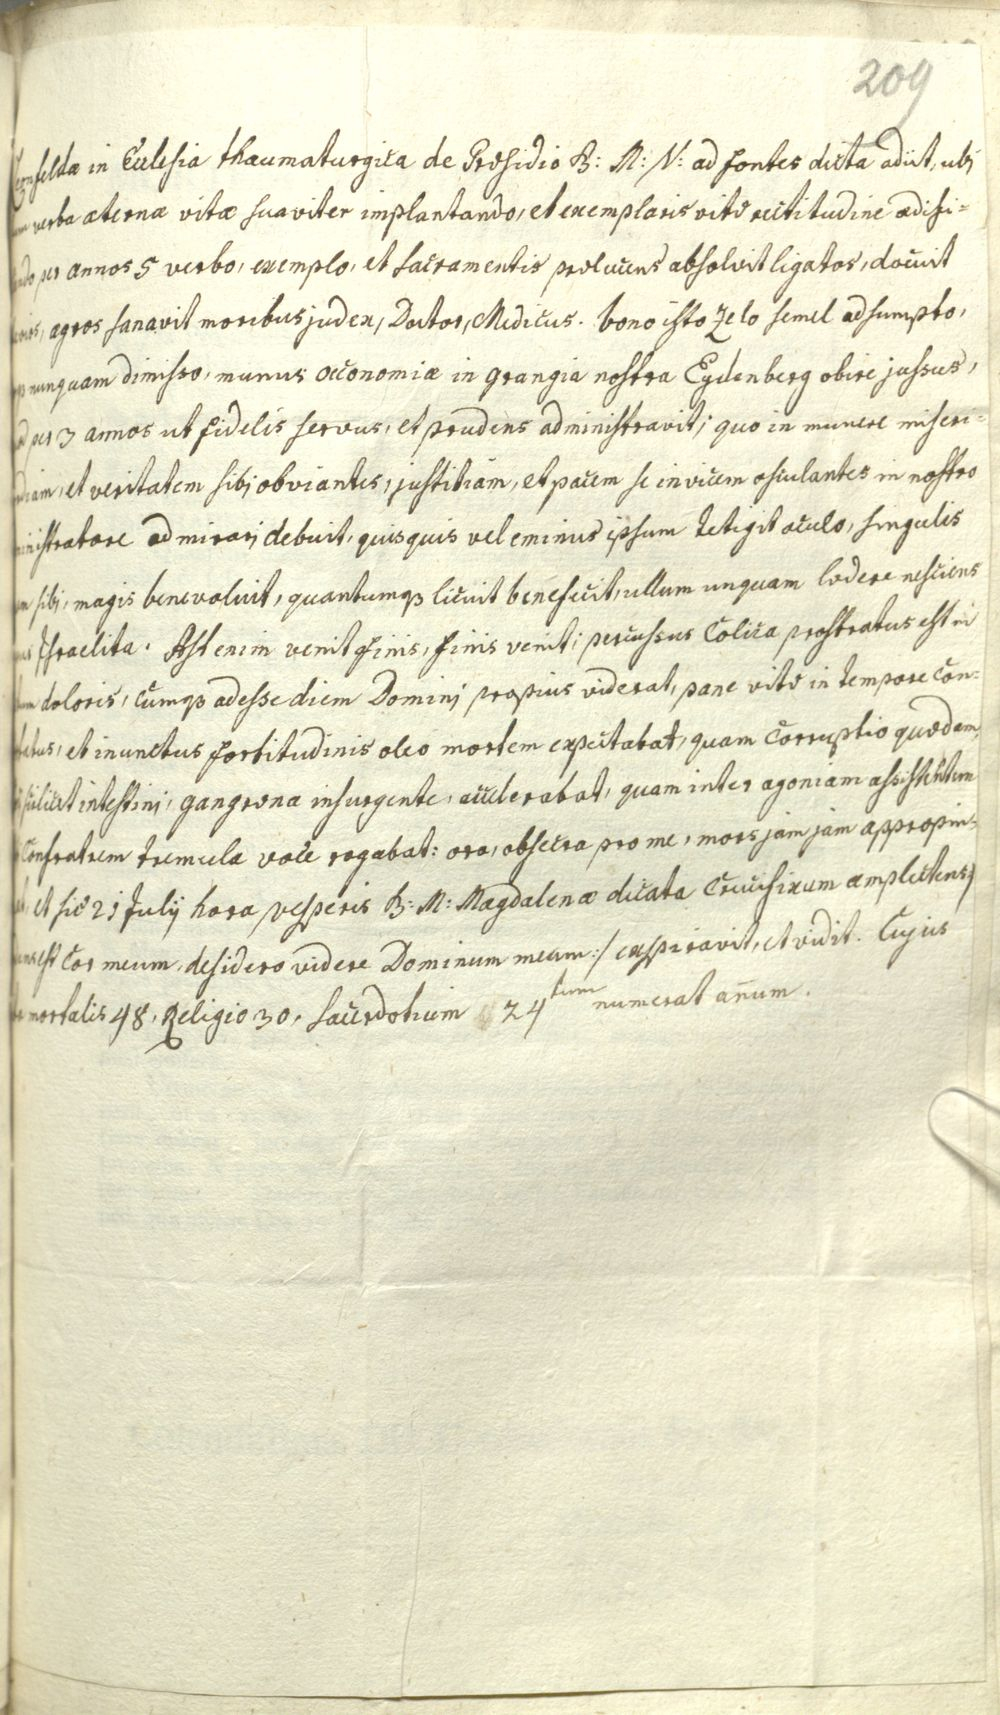 209
in Ecclesia thaumaturgica de Præsidio B: M: V: ad fontes dicta adiit, ubj
verba æternæ vitæ suaviter implantando, et exemplaris vitæ rectitudine ædifi=
per annos 5 verbo, exemplo, et sacramentis prælucens absolvit ligatos, docuit
ægros sanavit moribus judex, Doctor, Medicus. bono isto zelo semel adsumpto,
nunquam dimisso, munus œconomiæ in grangia nostra Eydenberg obire jussus,
per 3 annos ut fidelis servus, et prudens administravit; quo in munere miseri=
et veritatem sibj obviantes, justitiam, et pacem se invicem osculantes in nostro
admirarj debuit, quisquis vel eminus ipsum tetigit oculo, singulis
sibj, magis benevoluit, quantumq3 licuit benefecit, ullum unquam lædere nesciens
Israelita. Ast enim venit finis, finis venit; percussus Colica prostratus est in
doloris, cumq3 adesse diem Dominj propius viderat, pane vitæ in tempore Con=
et inunctus fortitudinis oleo mortem expectabat, quam Corruptio quædam
scilicet intestinj, gangræna insurgente, accelerabat, quam inter agoniam assistentem
Confratrem tremula voce rogabat: ora, obsecra pro me, mors jam jam appropin=
et sic 21 Julij hora vesperis B: M: Magdalenæ dicata Crucifixum amplectens /
est Cor meum, desidero videre Dominum meum :/ exspiravit, et vidit. Cujus
mortalis 48, Religio 30, Sacerdotium 24tum numerat añum.